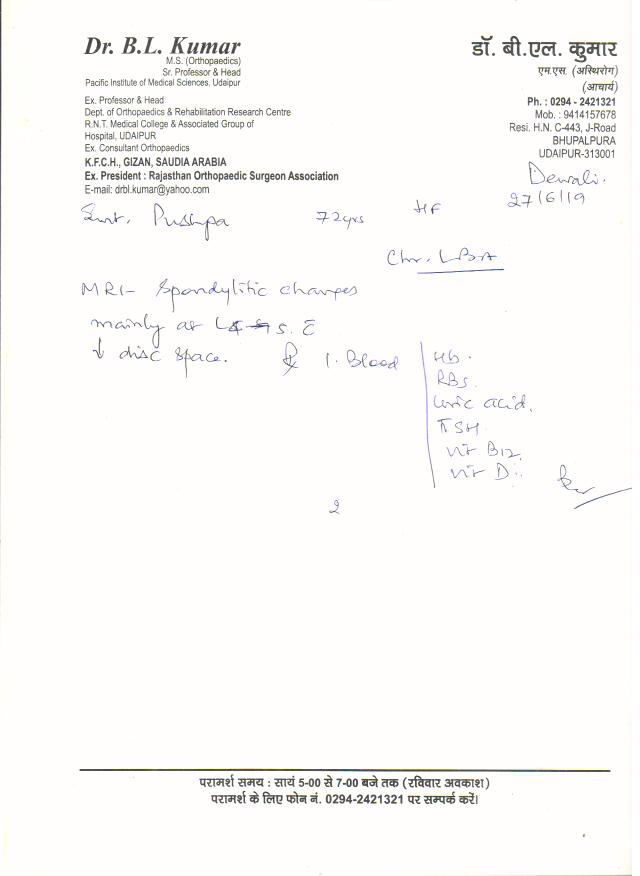 Dr. B.L. Kumar
M.S. (Orthopaedics)
Sr. Professor & Head
Pacific Institute of Medical Sciences, Udaipur
Ex. Professor & Head
Dept. of Orthopaedics & Rehabilitation Research Centre
R.N.T. Medical College & Associated Group of
Hospital, UDAIPUR
Ex. Consultant Orthopaedics
K.F.C.H., GIZAN, SAUDIA ARABIA
Ex. President : Rajasthan Orthopaedic Surgeon Association
E-mail: drbl.kumar@yahoo.com
डॉ. बी.एल. कुमार
एम.एस. (अस्थिरोग)
(आचार्य)
Ph. : 0294 - 2421321
Mob. : 9414157678
Resi. H.N. C-443, J-Road
BHUPALPURA
UDAIPUR-313001
Dewali.
27/6/19
Smt. Pushpa 72yrs HF
Chr. LBA
MRI- Spondylitic changes
mainly at
↓ disc space. ℞ 1. Blood
Hb.
RBS.
Uric acid.
TSH
Vit B12.
Vit D.
2
परामर्श समय : सायं 5-00 से 7-00 बजे तक (रविवार अवकाश)
परामर्श के लिए फोन नं. 0294-2421321 पर सम्पर्क करें।